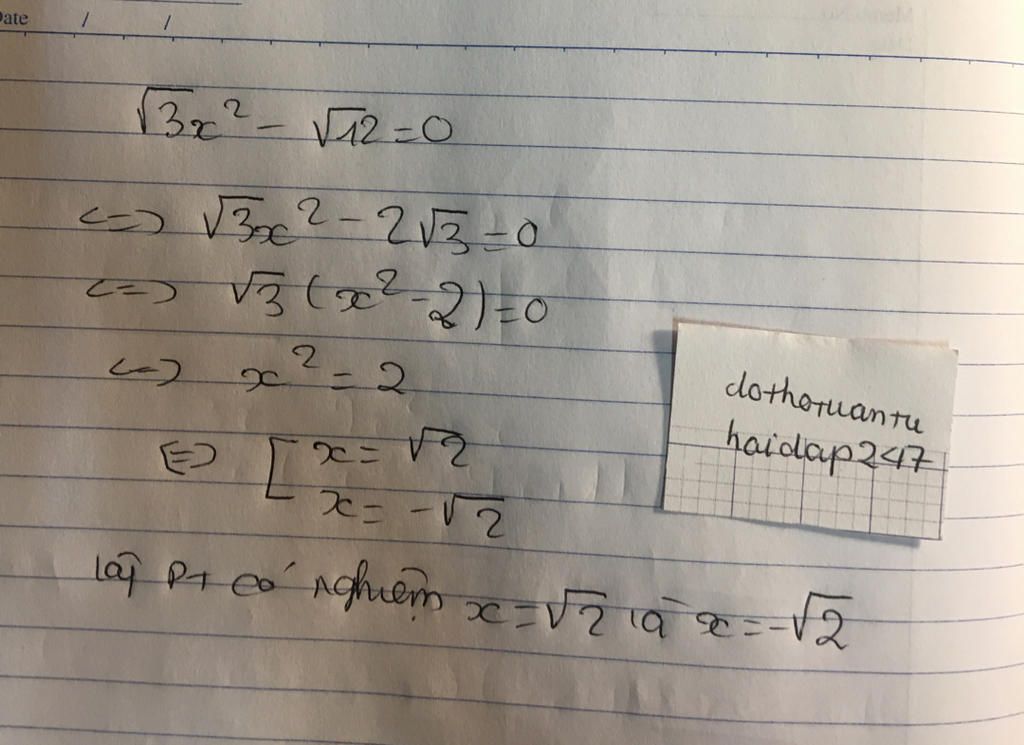 Date / /
√3x² - √12 = 0
<=> √3x² - 2√3 = 0
<=> √3 (x² - 2) = 0
<=> x² = 2
<=> [ x = √2
x = -√2
Vậy Pt có nghiệm x = √2 và x = -√2
dothotuantu
haidap247